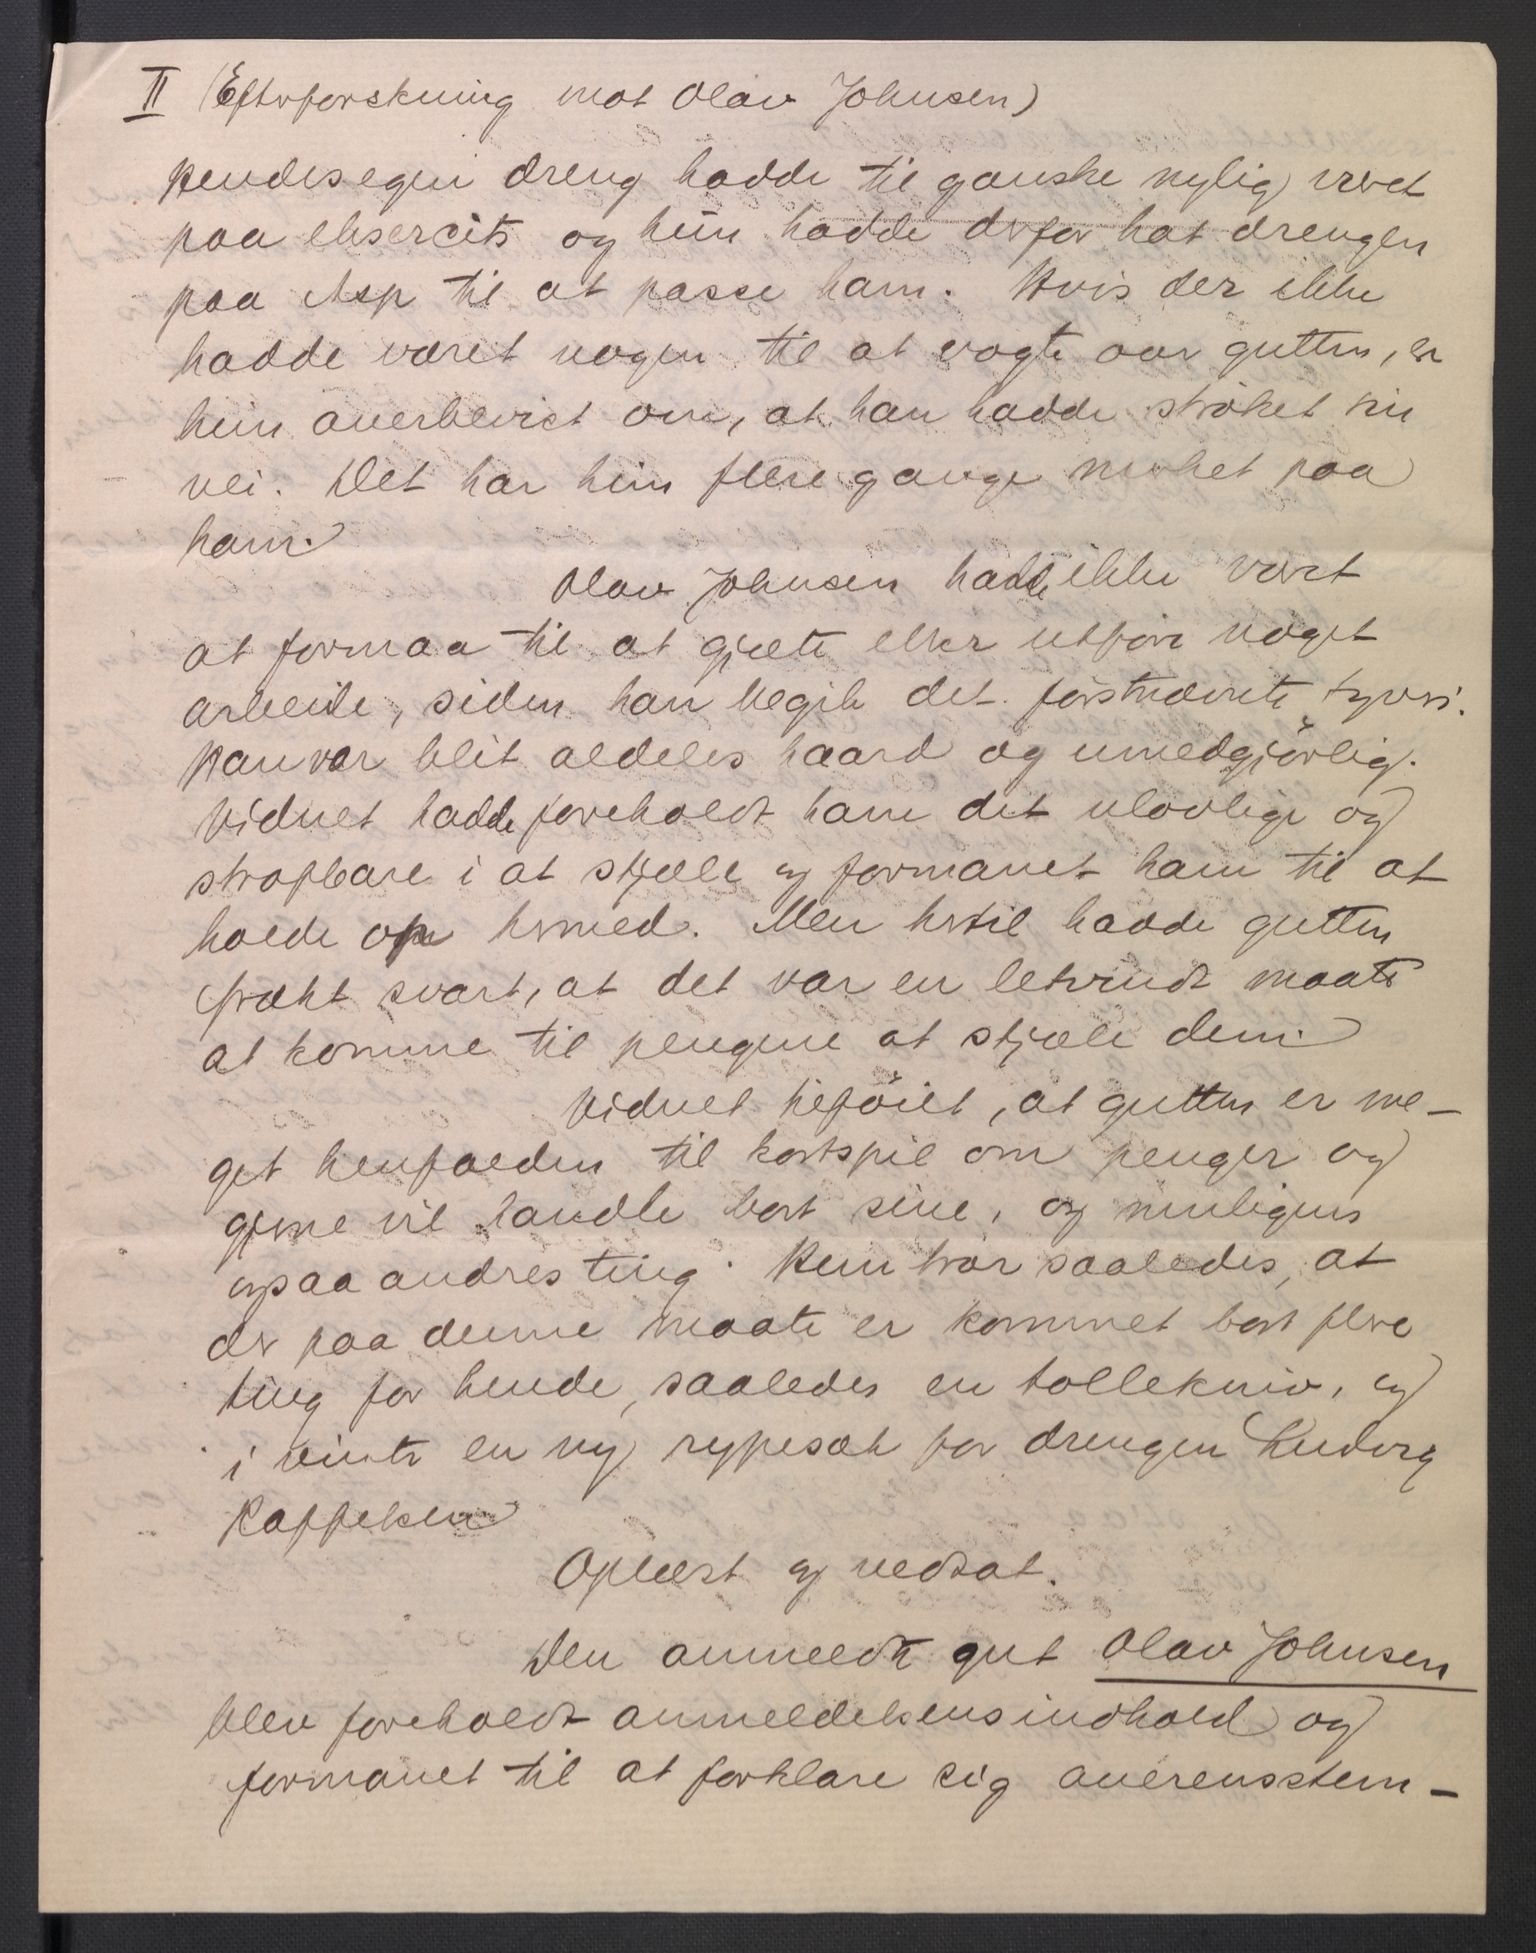 II (Efterforskning mot Olav Johnsen)
Hendes egen dreng hadde til ganske nylig været
paa eksercits og hun hadde derfor hat drengen
paa Asp til at passe ham. Hvis der ikke
hadde været nogen til at vogte over gutten, er
hun overbevist om, at han hadde strøket sin
vei. Det har hun flere gange merket paa
ham.
Olav Johnsen hadde ikke været
at formaa til at gjæte eller utføre noget
arbeide, siden han begik det førstnævnte tyveri.
Han var blit aldeles haard og umedgjørlig.
Vidnet hadde foreholdt ham det ulovlige og
strafbare i at stjæle og formanet ham til at
holde op hermed. Men hertil hadde gutten
frækt svart, at det var en letvindt maate
at komme til pengene at stjæle dem.
Vidnet tilføiet, at gutten er me-
get henfalden til kortspil om penger og
gjerne vil handle bort sine, og muligens
ogsaa andres ting. Hun tror saaledes, at
der paa denne maate er kommet bort flere
ting for hende, saaledes en tollekniv, og
i vinter en ny rypesæk for drengen Ludvig
Kappelsen
Oplæst og vedtat.
Den anmeldte gut Olav Johnsen
blev foreholdt anmeldelsens indhold og
formanet til at forklare sig overensstem-